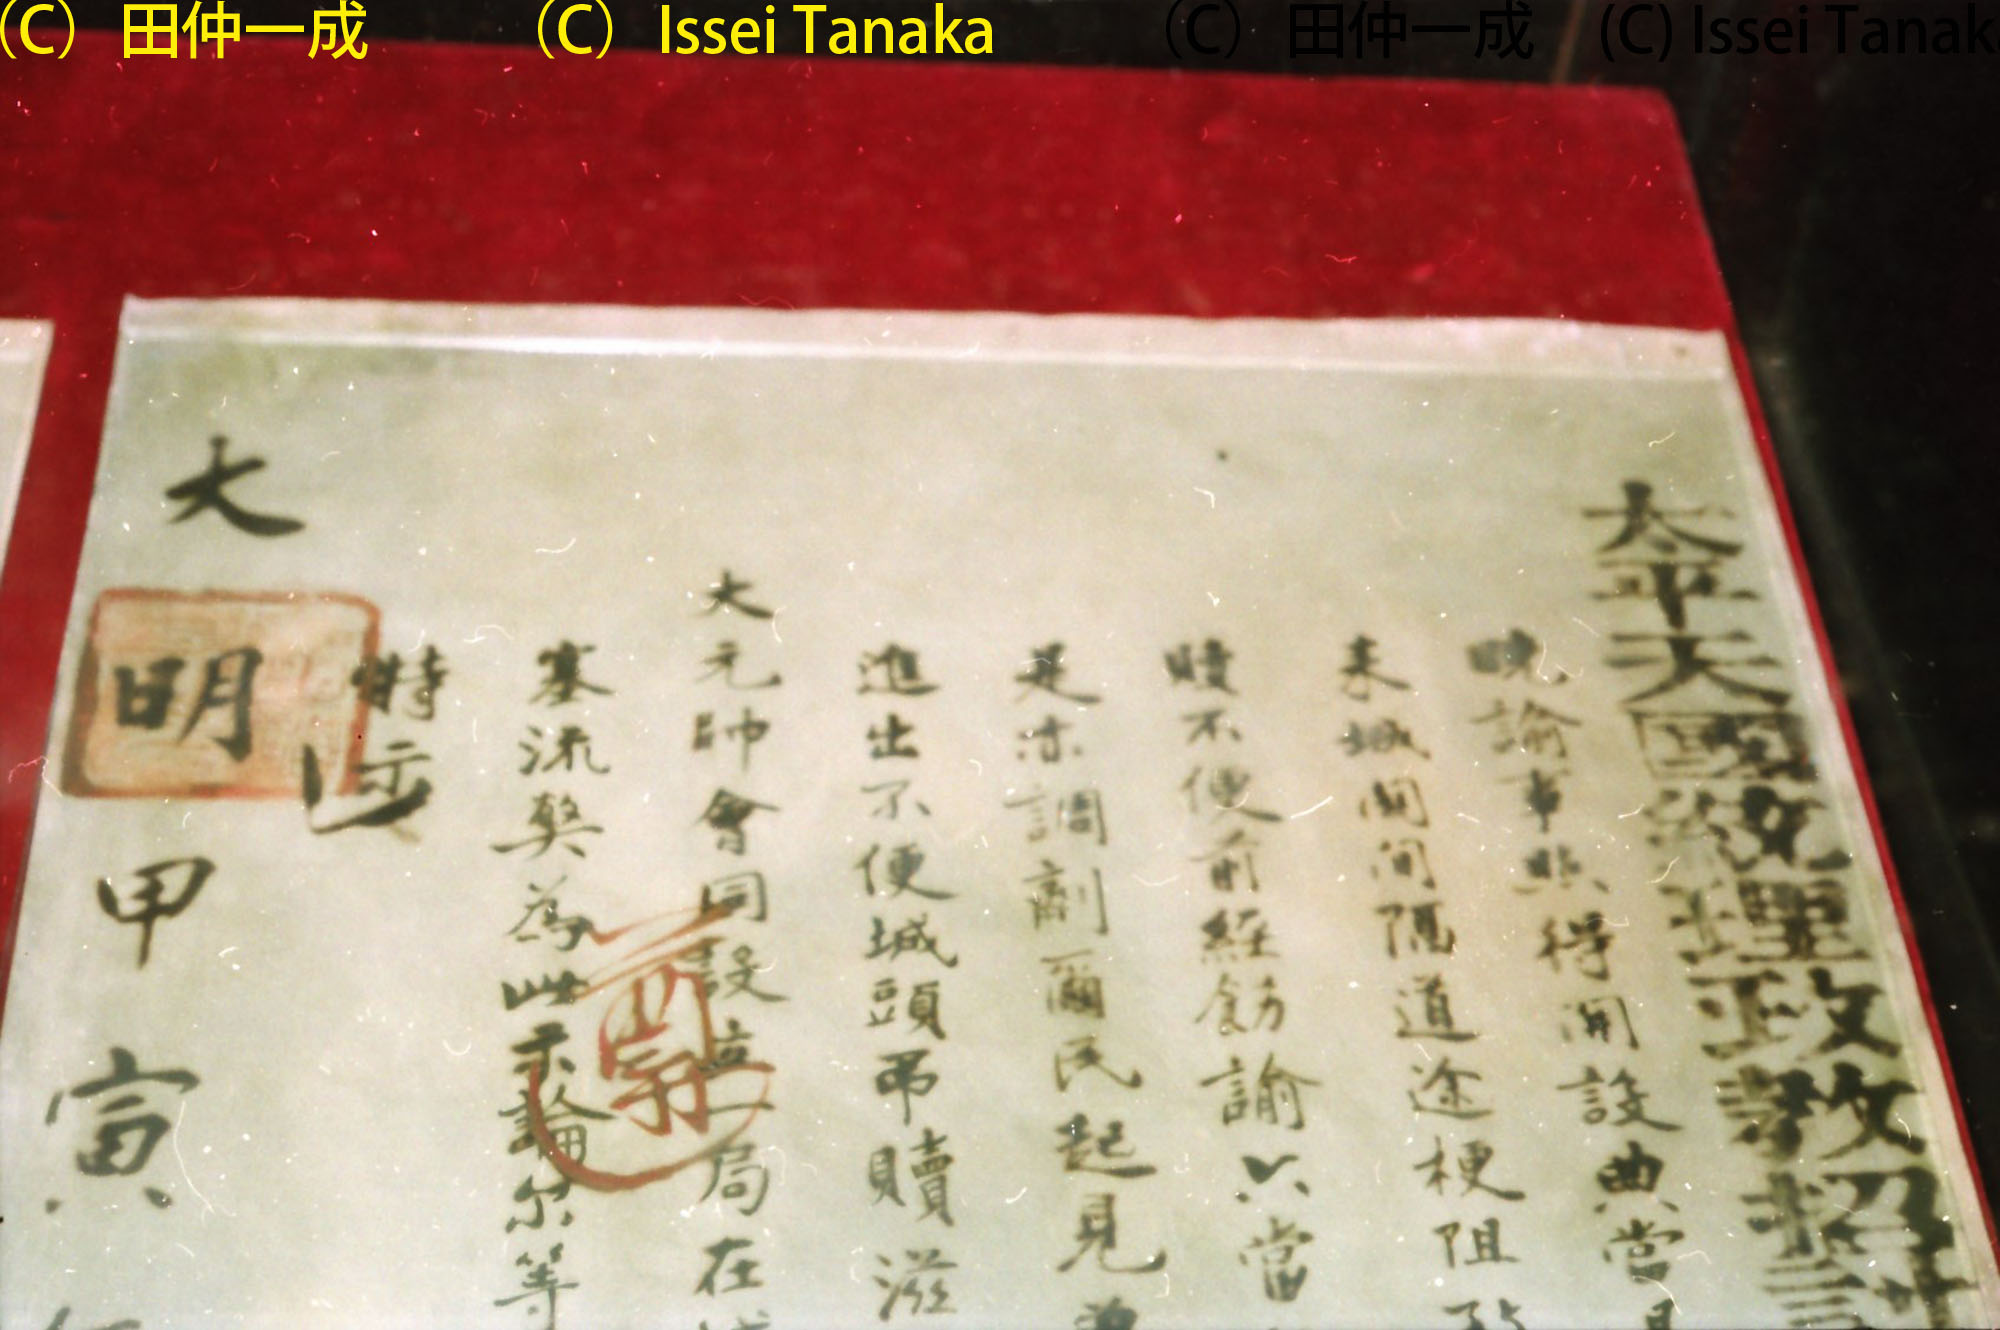 (C) 田仲一成 (C) Issei Tanaka (C) 田仲一成 (C) Issei Tanak
太平天國統理政教招討
曉諭事照得開設典當
來城鄉間隔道途梗阻致
贖不便前經飭諭公當
是亦調劑爾民起見
進出不便城頭吊贖滋
大元帥會同設立一局在
塞流獘爲此示諭尔等
特示
大明甲寅